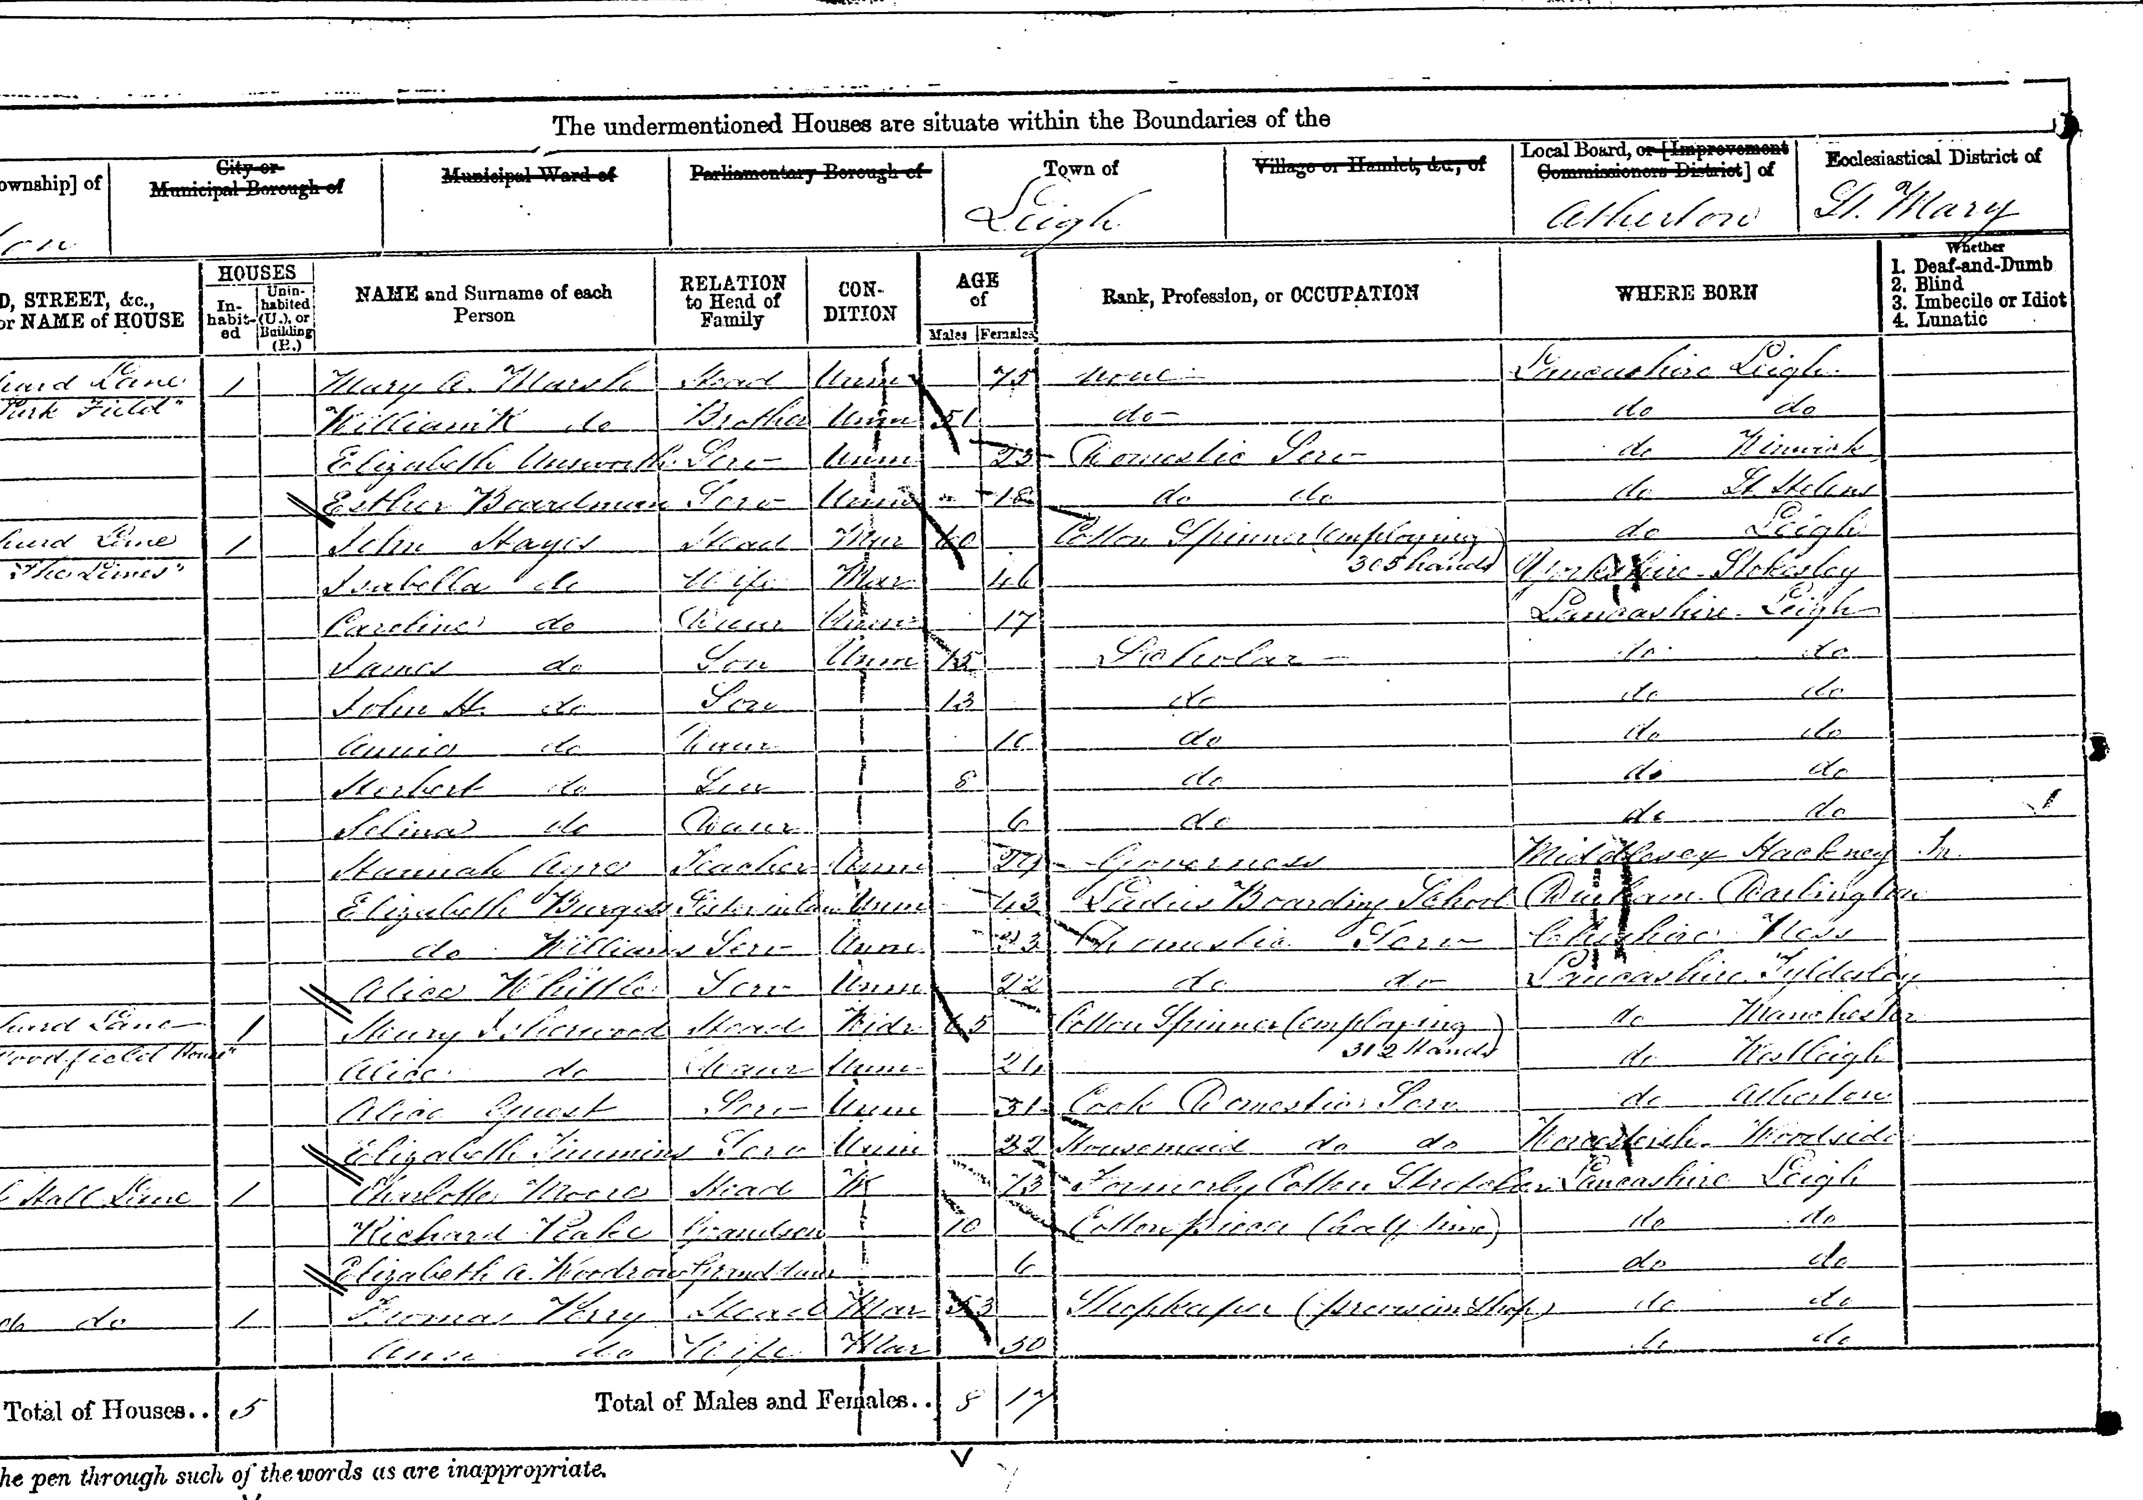 The undermentioned Houses are situate within the Boundaries of the
ownship] of City or Municipal Borough of Municipal Ward of Parliamentary Borough of Town of Village or Hamlet, &c., of Local Board, or [Improvement Commissioners District] of Ecclesiastical District of
ton Leigh Atherton St. Mary
D, STREET, &c., or NAME of HOUSE HOUSES In-habit-ed Unin-habited (U.), or Building (B.) NAME and Surname of each Person RELATION to Head of Family CON-DITION AGE of Males Females Rank, Profession, or OCCUPATION WHERE BORN Whether 1. Deaf-and-Dumb 2. Blind 3. Imbecile or Idiot 4. Lunatic
hard Lane 1 Mary A. Marsh Head Unm 75 none Lancashire Leigh
Park Field" William K do Brother Unm 51 do do do
Elizabeth Unsworth Serv Unm 23 Domestic Serv do Winwick
Esther Boardman Serv Unm 18 do do do St Helens
hard Lane 1 John Hayes Head Mar 60 Cotton Spinner (employing 305 hands) do Leigh
"The Limes" Isabella do Wife Mar 46 Yorkshire Stokesley
Caroline do Daur Unm 17 Lancashire Leigh
James do Son Unm 15 Scholar do do
John H. do Son 13 do do do
Annie do Daur 10 do do do
Herbert do Son 8 do do do
Selina do Daur 6 do do do
Hannah Ayre Teacher Unm 29 Governess Middlesex Hackney
Elizabeth Burgess Sister in law Unm 43 Ladies Boarding School Durham Darlington
do Williams Serv Unm 23 Domestic Serv Cheshire Ness
Alice Whittle Serv Unm 22 do do Lancashire Tyldesley
hard Lane 1 Henry Isherwood Head Widr 65 Cotton Spinner (employing 312 Hands) do Manchester
Woodfield House" Alice do Daur Unm 24 do Westleigh
Alice Guest Serv Unm 31 Cook Domestic Serv do Atherton
Elizabeth Timmins Serv Unm 32 Housemaid do do Worcestersh. Woodside
Hall Lane 1 Charlotte Moore Head W 73 Formerly Cotton Stretcher Lancashire Leigh
Richard Peake Grandson 10 Cotton piecer (half time) do do
Elizabeth A. Woodrow Grand daur 6 do do
do do 1 Thomas Perry Head Mar 53 Shopkeeper (provision Shop) do do
Ann do Wife Mar 50 do do
Total of Houses.. 5 Total of Males and Females.. 8 17
he pen through such of the words as are inappropriate.